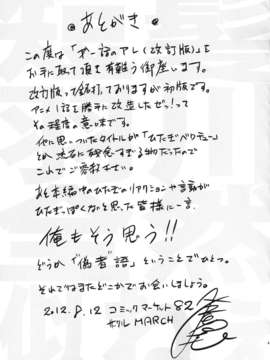 ◎ あとがき ◎
この度は「オー話のアレ(改訂版)」を
お手に取って頂き有難う御座います。
改訂版って銘打っておりますが初版です。
アニメ1話を勝手に改生したぜっ!って
その程度の意味です。
他に思いついたタイトルが「ひたぎバリュー」
とか、流石に残念すぎる物だったので
これでご容赦下さい。
あと本編中のひたぎのリアクションや言動が
ひたぎっぽくないと思った皆様に一言
俺もそう思う!!
どうか「偽者語」ということでひとつ。
それではまたどこかでお会いしましょう。
2012.8.12 コミックマーケット82
サークル MARCH